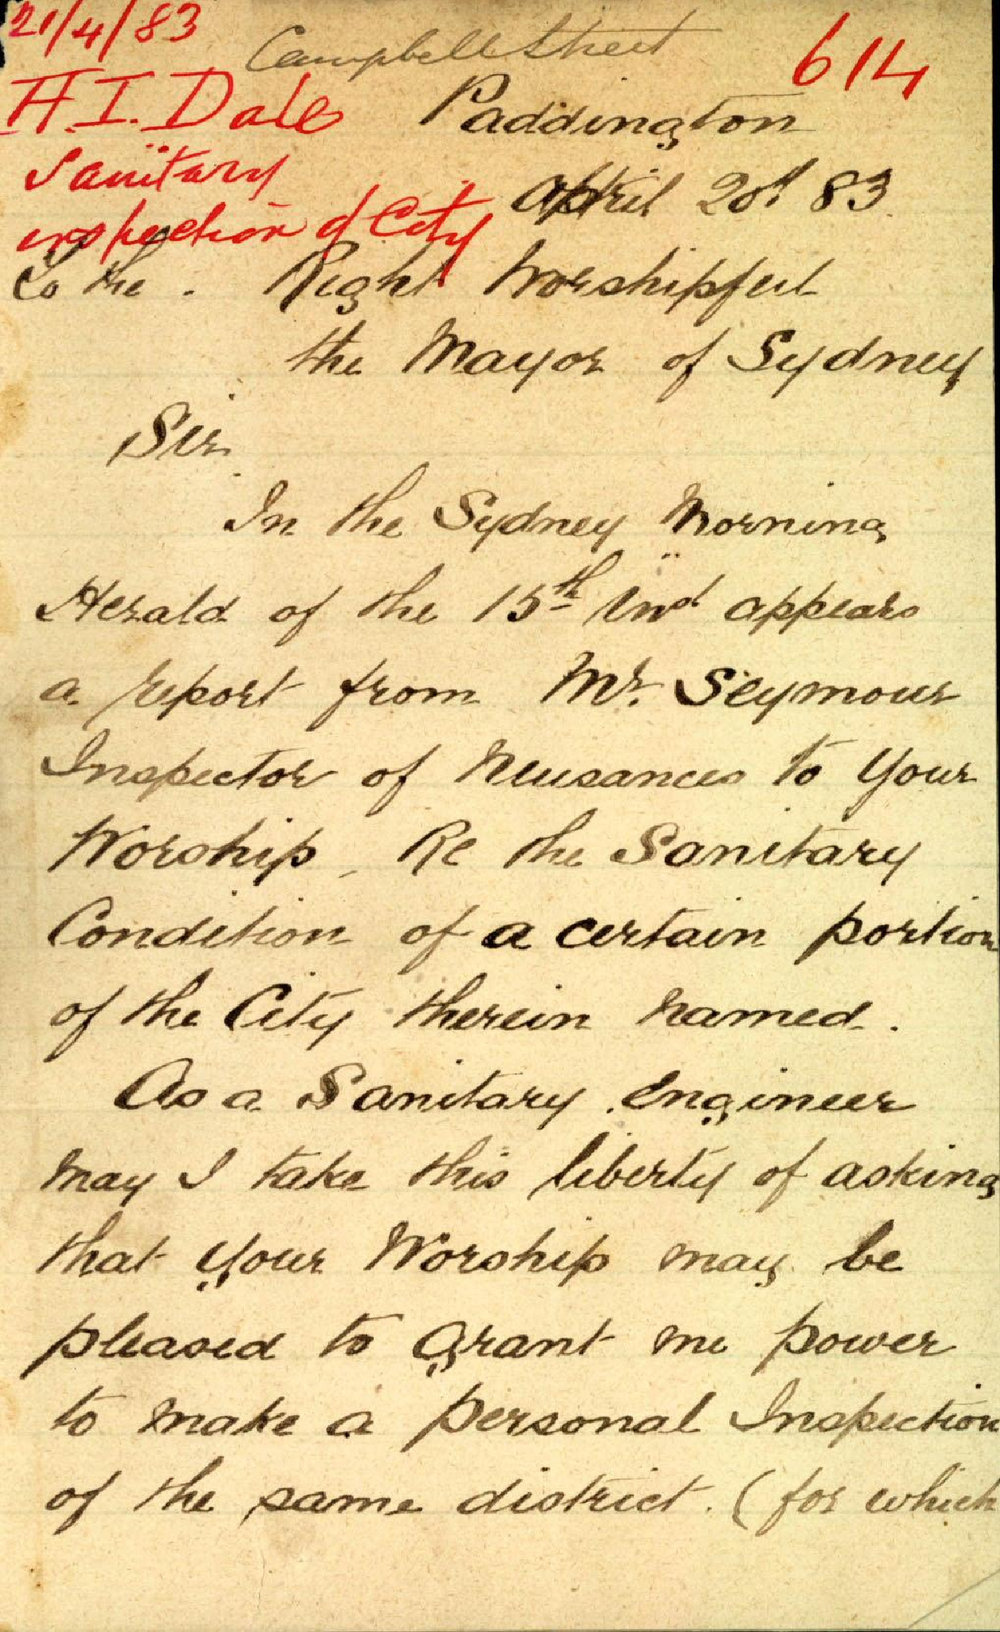 21/4/83
Campbell Street
614
H.I. Dale
Paddington
Sanitary
April 20th 83.
inspection of City
To the . Right Worshipful
the Mayor of Sydney
Sir
In the Sydney Morning
Herald of the 15th Inst appears
a report from Mr. Seymour
Inspector of Neusances to Your
Worship, Re the Sanitary
Condition of a certain portion
of the City therein named.
As a Sanitary Engineer
may I take this liberty of asking
that your Worship may be
pleased to grant me power
to make a personal Inspection
of the same district. (for which